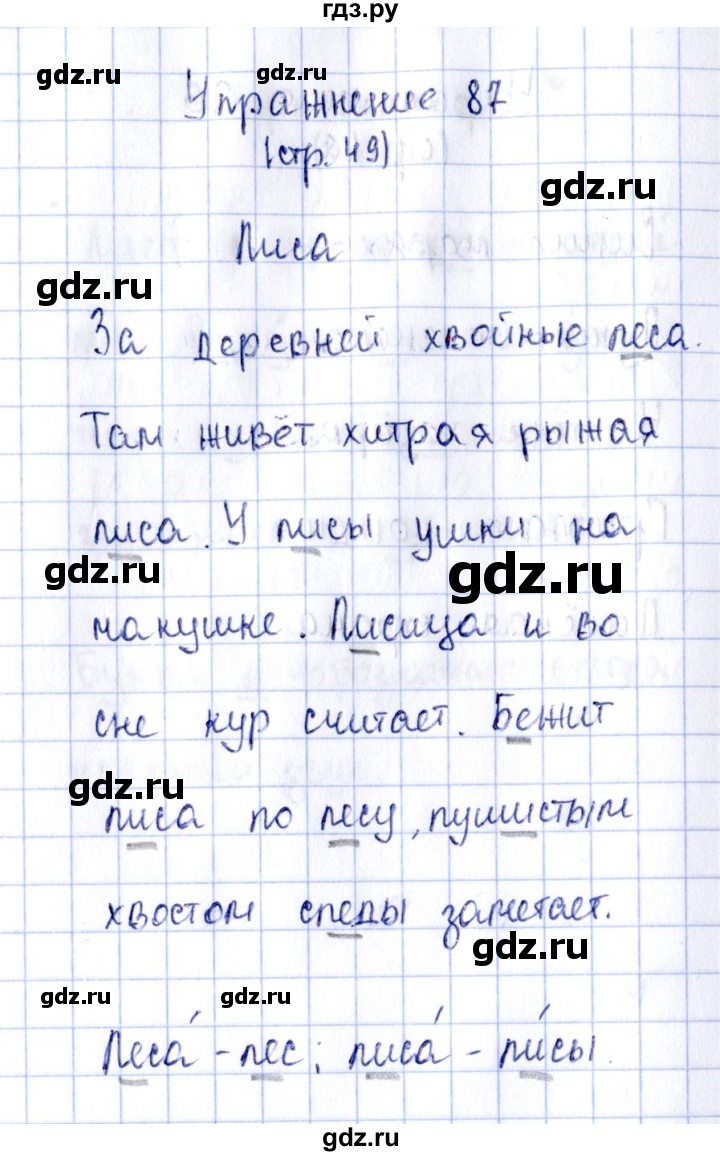 гдз.ру
gdz.ru
gdz.ru
Упражнение 87
(стр. 49)
gdz.ru
Лиса
gdz.ru
За деревней хвойные леса.
Там живёт хитрая рыжая
лиса. У лисы ушки на
gdz.ru
gdz.ru
макушке. Лисица и во
сне кур считает. Бежит
gdz.ru
лиса по лесу, пушистым
хвостом следы заметает.
gdz.ru
gdz.ru
gdz.ru
Леса́ - лес; лиса́ - ли́сы.
gdz.ru
gdz.ru
gdz.ru